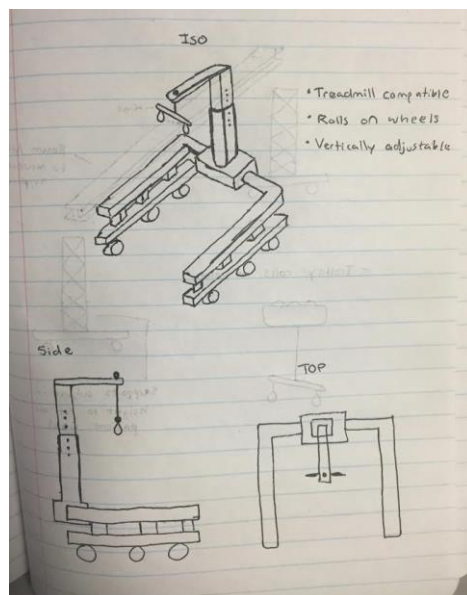 ISO
• Treadmill compatible
• Rolls on wheels
• Vertically adjustable
Side
TOP